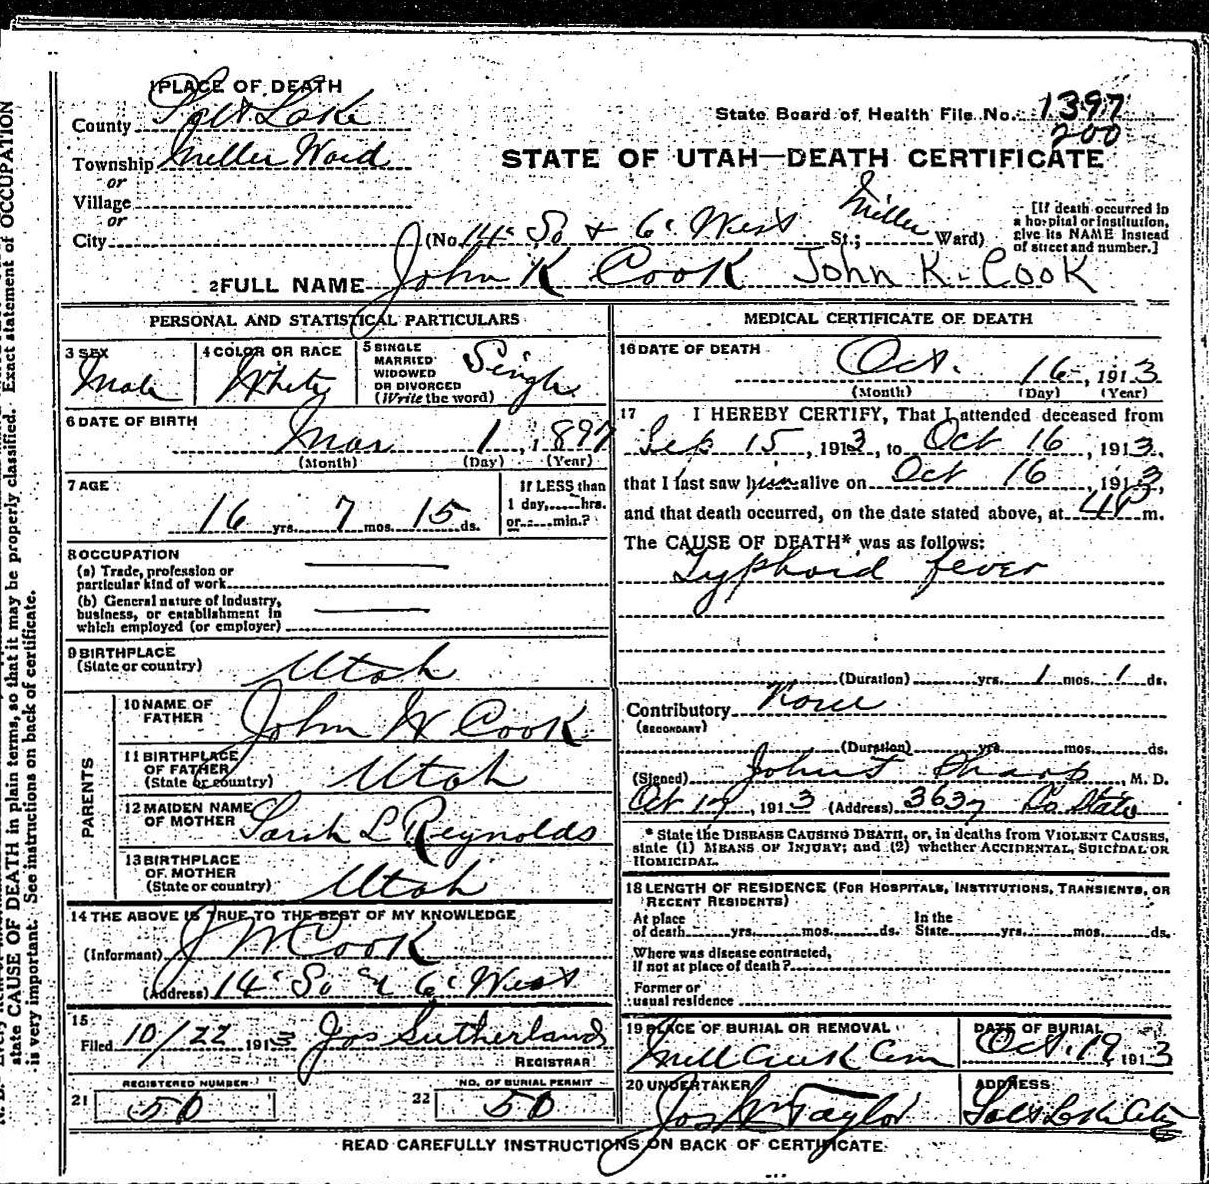 1 PLACE OF DEATH
County Salt Lake
State Board of Health File No. 1397
200
Township Miller Ward
STATE OF UTAH—DEATH CERTIFICATE
or
Village
or
City (No. 14" So & 6" West St.; Miller Ward)
[If death occurred in
a hospital or institution,
give its NAME instead
of street and number.]
2 FULL NAME John K Cook John K. Cook
PERSONAL AND STATISTICAL PARTICULARS
3 SEX
Male
4 COLOR OR RACE
White
5 SINGLE
MARRIED
WIDOWED
OR DIVORCED
(Write the word)
Single
6 DATE OF BIRTH
Mar 1, 1897
(Month) (Day) (Year)
7 AGE
16 yrs. 7 mos. 15 ds.
If LESS than
1 day,.....hrs.
or.....min.?
8 OCCUPATION
(a) Trade, profession or
particular kind of work
(b) General nature of industry,
business, or establishment in
which employed (or employer)
9 BIRTHPLACE
(State or country) Utah
PARENTS
10 NAME OF
FATHER John W Cook
11 BIRTHPLACE
OF FATHER
(State or country) Utah
12 MAIDEN NAME
OF MOTHER Sarah L Reynolds
13 BIRTHPLACE
OF MOTHER
(State or country) Utah
14 THE ABOVE IS TRUE TO THE BEST OF MY KNOWLEDGE
(Informant) J W Cook
(Address) 14" So & 6" West
15
Filed 10/22 1913 Jos Sutherland
REGISTRAR
REGISTERED NUMBER
21 50
NO. OF BURIAL PERMIT
22 50
MEDICAL CERTIFICATE OF DEATH
16 DATE OF DEATH
Oct. 16, 1913
(Month) (Day) (Year)
17 I HEREBY CERTIFY, That I attended deceased from
Sep 15, 1913, to Oct 16, 1913,
that I last saw him alive on Oct 16, 1913,
and that death occurred, on the date stated above, at 4 P m.
The CAUSE OF DEATH* was as follows:
Typhoid fever
(Duration) yrs. 1 mos. 1 ds.
Contributory None
(SECONDARY)
(Duration) yrs. mos. ds.
(Signed) John F Sharp, M. D.
Oct 17, 1913 (Address) 3637 So State
* State the DISEASE CAUSING DEATH, or, in deaths from VIOLENT CAUSES,
state (1) MEANS OF INJURY; and (2) whether ACCIDENTAL, SUICIDAL OR
HOMICIDAL.
18 LENGTH OF RESIDENCE (FOR HOSPITALS, INSTITUTIONS, TRANSIENTS, OR
RECENT RESIDENTS)
At place
of death yrs. mos. ds.
In the
State yrs. mos. ds.
Where was disease contracted,
if not at place of death?
Former or
usual residence
19 PLACE OF BURIAL OR REMOVAL
Mill Creek Cem
DATE OF BURIAL
Oct. 19, 1913
20 UNDERTAKER
Jos Wm Taylor
ADDRESS
Salt Lk City
READ CAREFULLY INSTRUCTIONS ON BACK OF CERTIFICATE
state CAUSE OF DEATH in plain terms, so that it may be properly classified. Exact statement of OCCUPATION
is very important. See instructions on back of certificate.